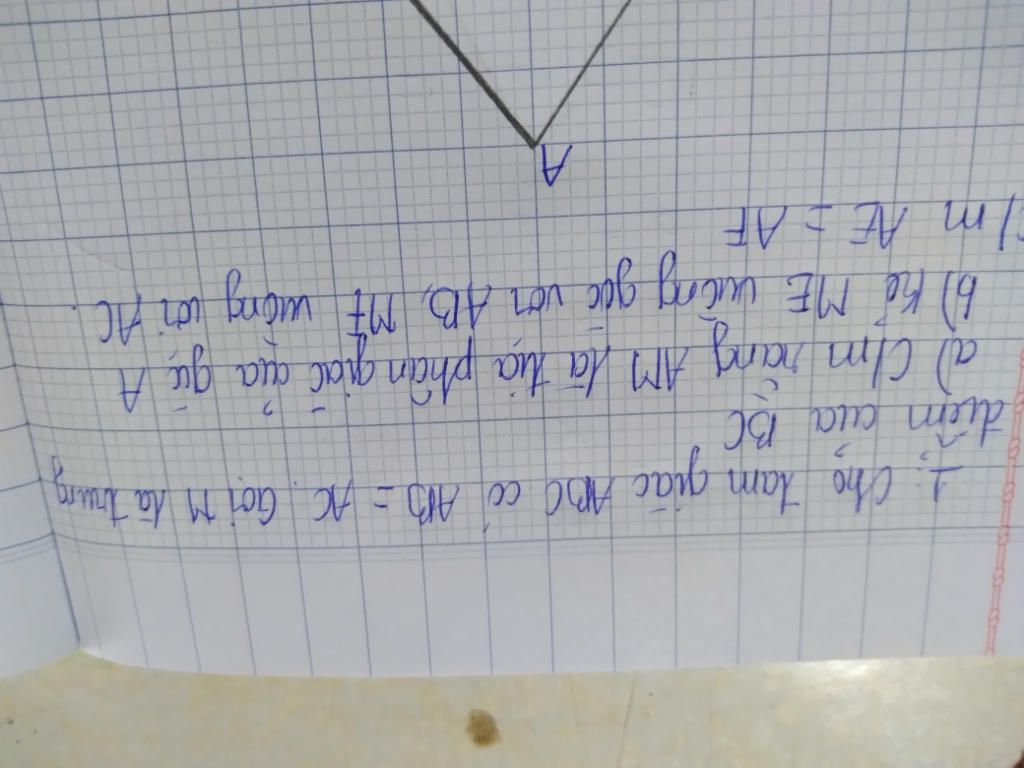 1: Cho tam giác ABC có AB = AC. Gọi M là trung
điểm của BC
a) C/m rằng AM là tia phân giác của góc A
b) Kẻ ME vuông góc với AB, MF vuông với AC.
C/m AE = AF
A